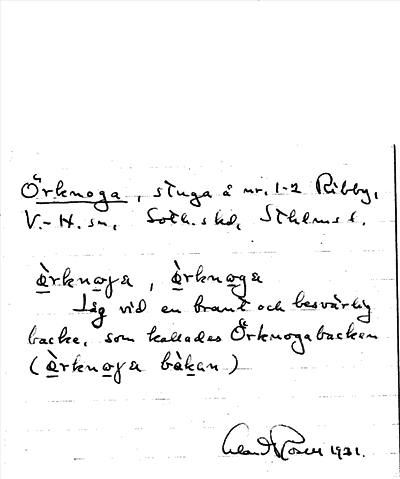 Örknoga, stuga å nr. 1-2 Ribby,
V.-H. sn, Soth. shd, Sthlms l.
ö̀rknoga, ö̀rknoga
Låg vid en brant och besvärlig
backe, som kallades Örknogabacken
(ö̀rknoga bàkan)
1931.